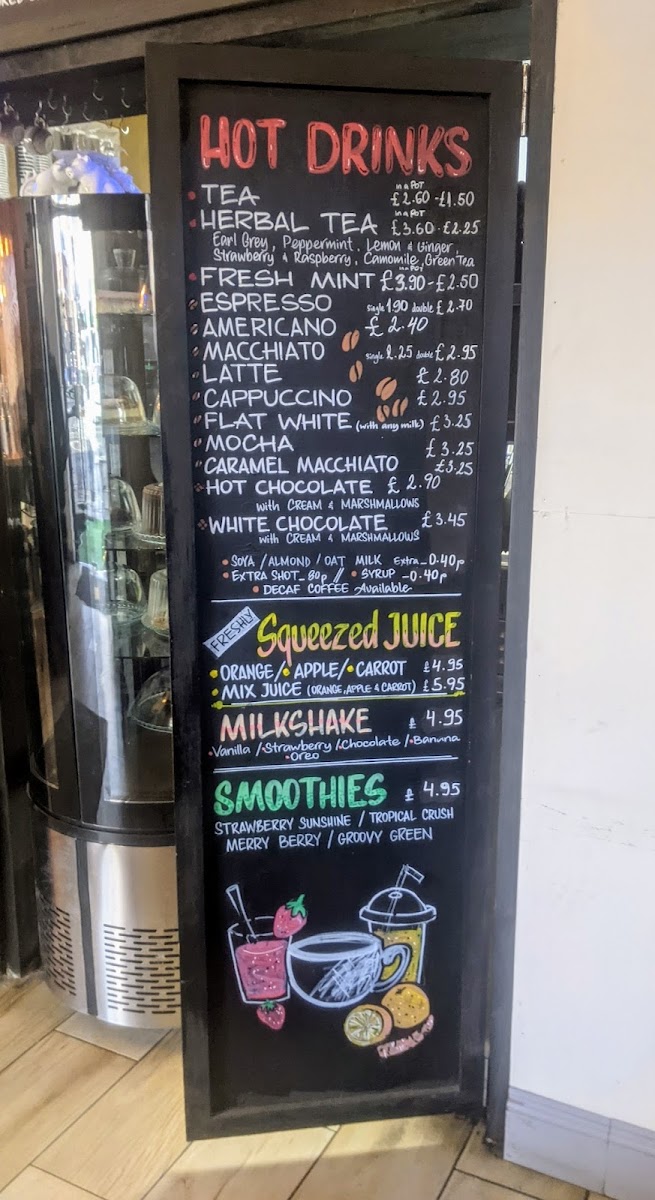 HOT DRINKS
in a POT
TEA £2.60 - £1.50
in a POT
HERBAL TEA £3.60 - £2.25
Earl Grey, Peppermint, Lemon & Ginger,
Strawberry & Raspberry, Camomile, Green Tea
in a POT
FRESH MINT £3.90 - £2.50
ESPRESSO single 1.90 double £2.70
AMERICANO £2.40
MACCHIATO single 2.25 double £2.95
LATTE £2.80
CAPPUCCINO £2.95
FLAT WHITE (with any milk) £3.25
MOCHA £3.25
CARAMEL MACCHIATO £3.25
HOT CHOCOLATE £2.90
with CREAM & MARSHMALLOWS
WHITE CHOCOLATE £3.45
with CREAM & MARSHMALLOWS
SOYA / ALMOND / OAT MILK Extra - 0.40p
EXTRA SHOT - 80p // SYRUP - 0.40p
DECAF COFFEE Available
FRESHLY Squeezed JUICE
ORANGE / APPLE / CARROT £4.95
MIX JUICE (ORANGE, APPLE & CARROT) £5.95
MILKSHAKE £4.95
Vanilla / Strawberry / Chocolate / Banana
Oreo
SMOOTHIES £4.95
STRAWBERRY SUNSHINE / TROPICAL CRUSH
MERRY BERRY / GROOVY GREEN